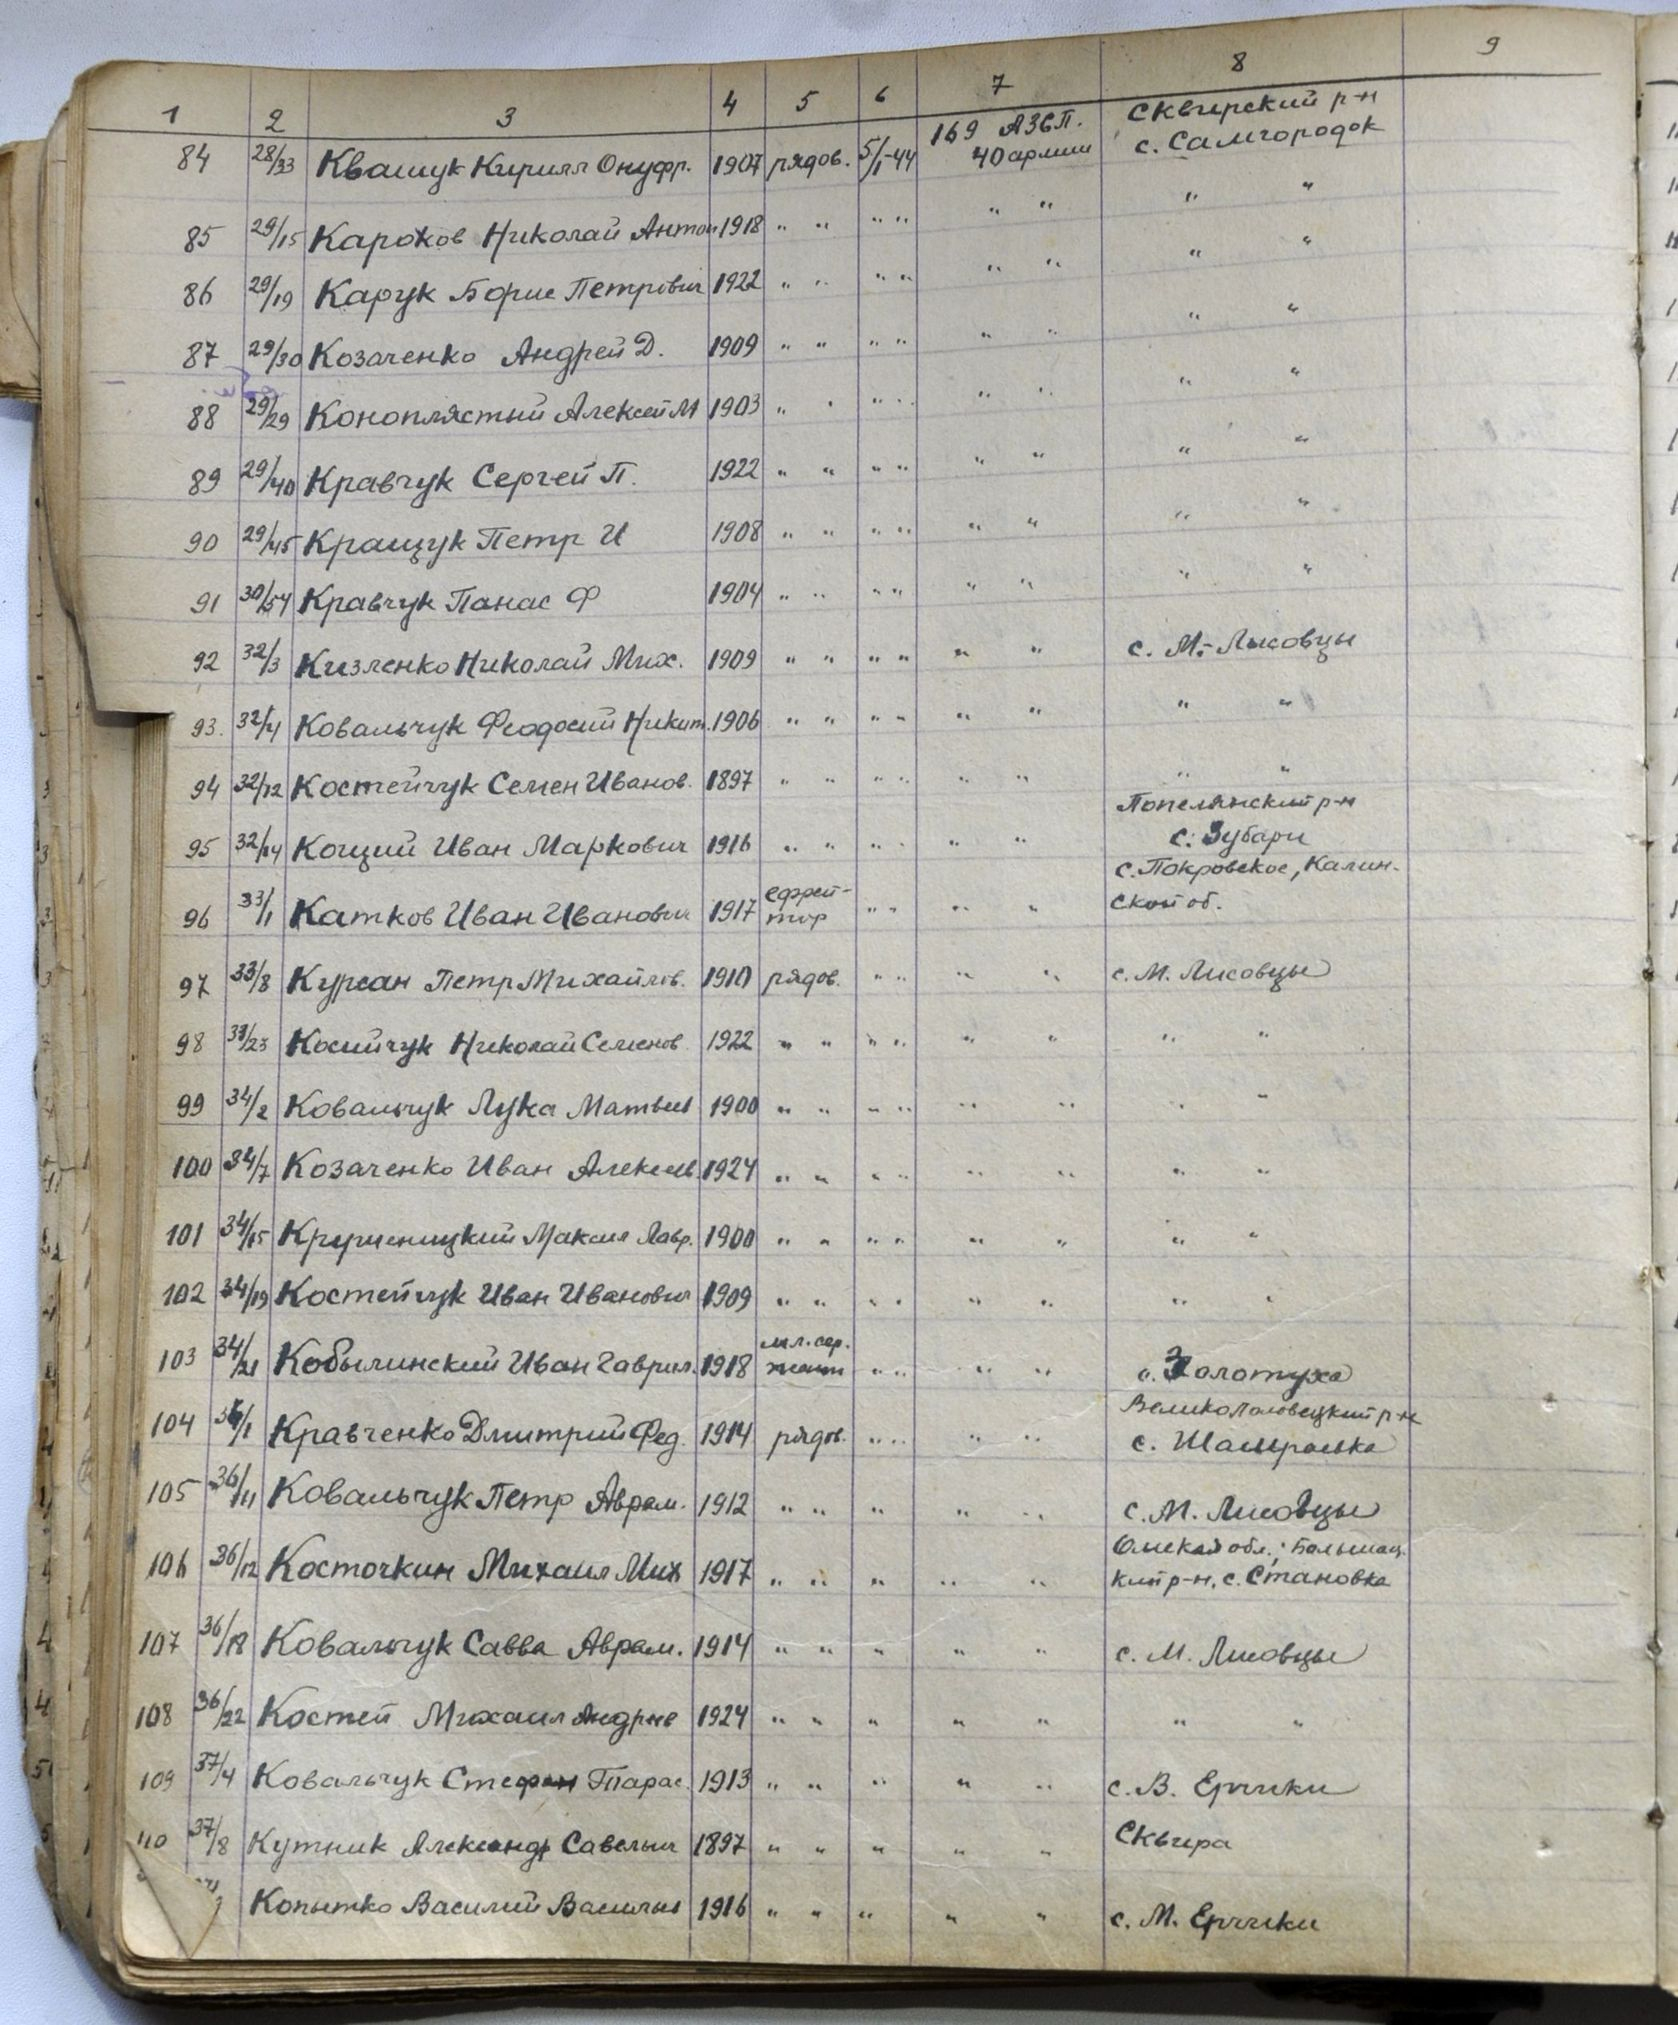 1 2 3 4 5 6 7 8 9
84 28/33 Квашук Кирилл Онуфр. 1907 рядов. 5/1-44 169 АЗСП. 40 армии Сквирский р-н с. Самгородок
85 29/15 Карохов Николай Антон 1918 " " " " " " " "
86 29/19 Карук Борис Петрович 1922 " " " " " " " "
87 29/30 Козаченко Андрей Д. 1909 " " " " " " " "
88 29/29 Коноплястый Алексей М 1903 " " " " " " " "
89 29/40 Кравчук Сергей П. 1922 " " " " " " " "
90 29/45 Кращук Петр И 1908 " " " " " " " "
91 30/54 Кравчук Панас Ф 1904 " " " " " " " "
92 32/3 Кизленко Николай Мих. 1909 " " " " " " с. М.- Лисовцы
93. 32/4 Ковальчук Феодосий Никит. 1906 " " " " " " " "
94 32/12 Костейчук Семен Иванов. 1897 " " " " " " " "
95 32/14 Коций Иван Маркович 1916 " " " " " " Попелянский р-н с. Зубари
96 33/1 Катков Иван Иванович 1917 ефрейтор " " " " с. Покровское, Калин- ской об.
97 33/8 Курсан Петр Михайлов. 1910 рядов. " " " " с. М. Лисовцы
98 33/23 Косийчук Николай Семенов. 1922 " " " " " " " "
99 34/2 Ковальчук Лука Матвеев 1900 " " " " " " " "
100 34/7 Козаченко Иван Алексеев. 1924 " " " " " " " "
101 34/15 Крушеницкий Максим Лавр. 1900 " " " " " " " "
102 34/19 Костейчук Иван Иванович 1909 " " " " " " " "
103 34/21 Кобылинский Иван Гаврил. 1918 мл. сер- жант " " " " с. Золотуха
104 36/1 Кравченко Дмитрий Фед. 1914 рядов. " " " " Великополовецкий р-н с. Шамраевка
105 36/11 Ковальчук Петр Аврам. 1912 " " " " " с. М. Лисовцы
106 36/12 Косточкин Михаил Мих 1917 " " " " " Омская обл., Большац. кий р-н, с. Становка
107 36/18 Ковальчук Савва Аврам. 1914 " " " " " с. М. Лисовцы
108 36/22 Костей Михаил Андреев 1924 " " " " " " "
109 37/4 Ковальчук Стефан Тарас. 1913 " " " " " с. В. Ерчики
110 37/8 Кутник Александр Савельич 1897 " " " " " Сквира
Копытко Василий Васильев 1916 " " " " " с. М. Ерчики